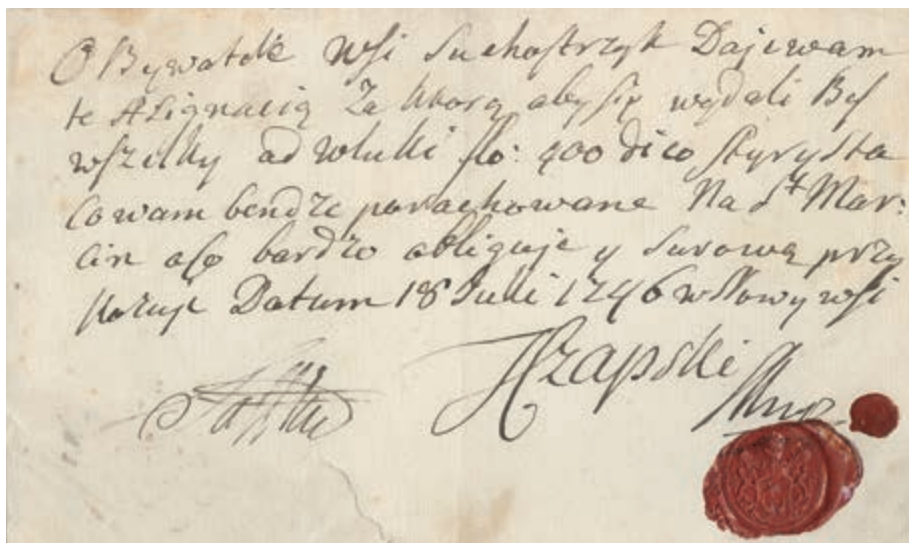 OBywatele wsi Suchostrzyk Dajewam
te Asignacią Za ktorą aby się wydali Bes
wszelky odwłuki flo: 400 dico styrysta
co wam bendze porachowane Na St Mar:
cin o so bardzo obliguje y surowa przy
Datum 18 Juli 1746 w Nowy wsi
Czapski